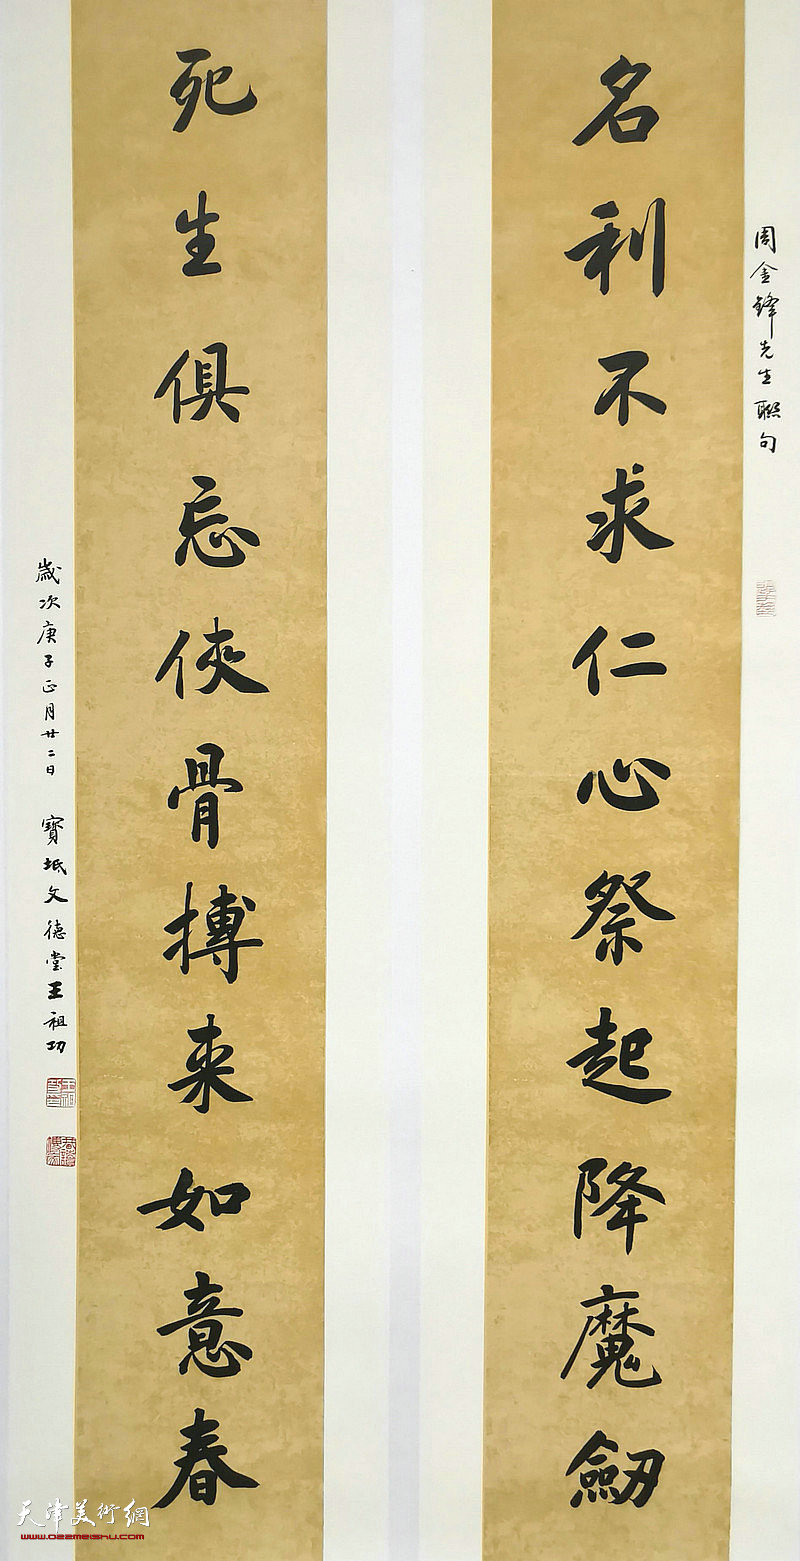 周金鋒先生聯句
名利不求仁心祭起降魔劔
死生俱忘俠骨搏来如意春
歲次庚子正月廿二日 寶坻文德堂王祖功
天津美術網
www.022meishu.com